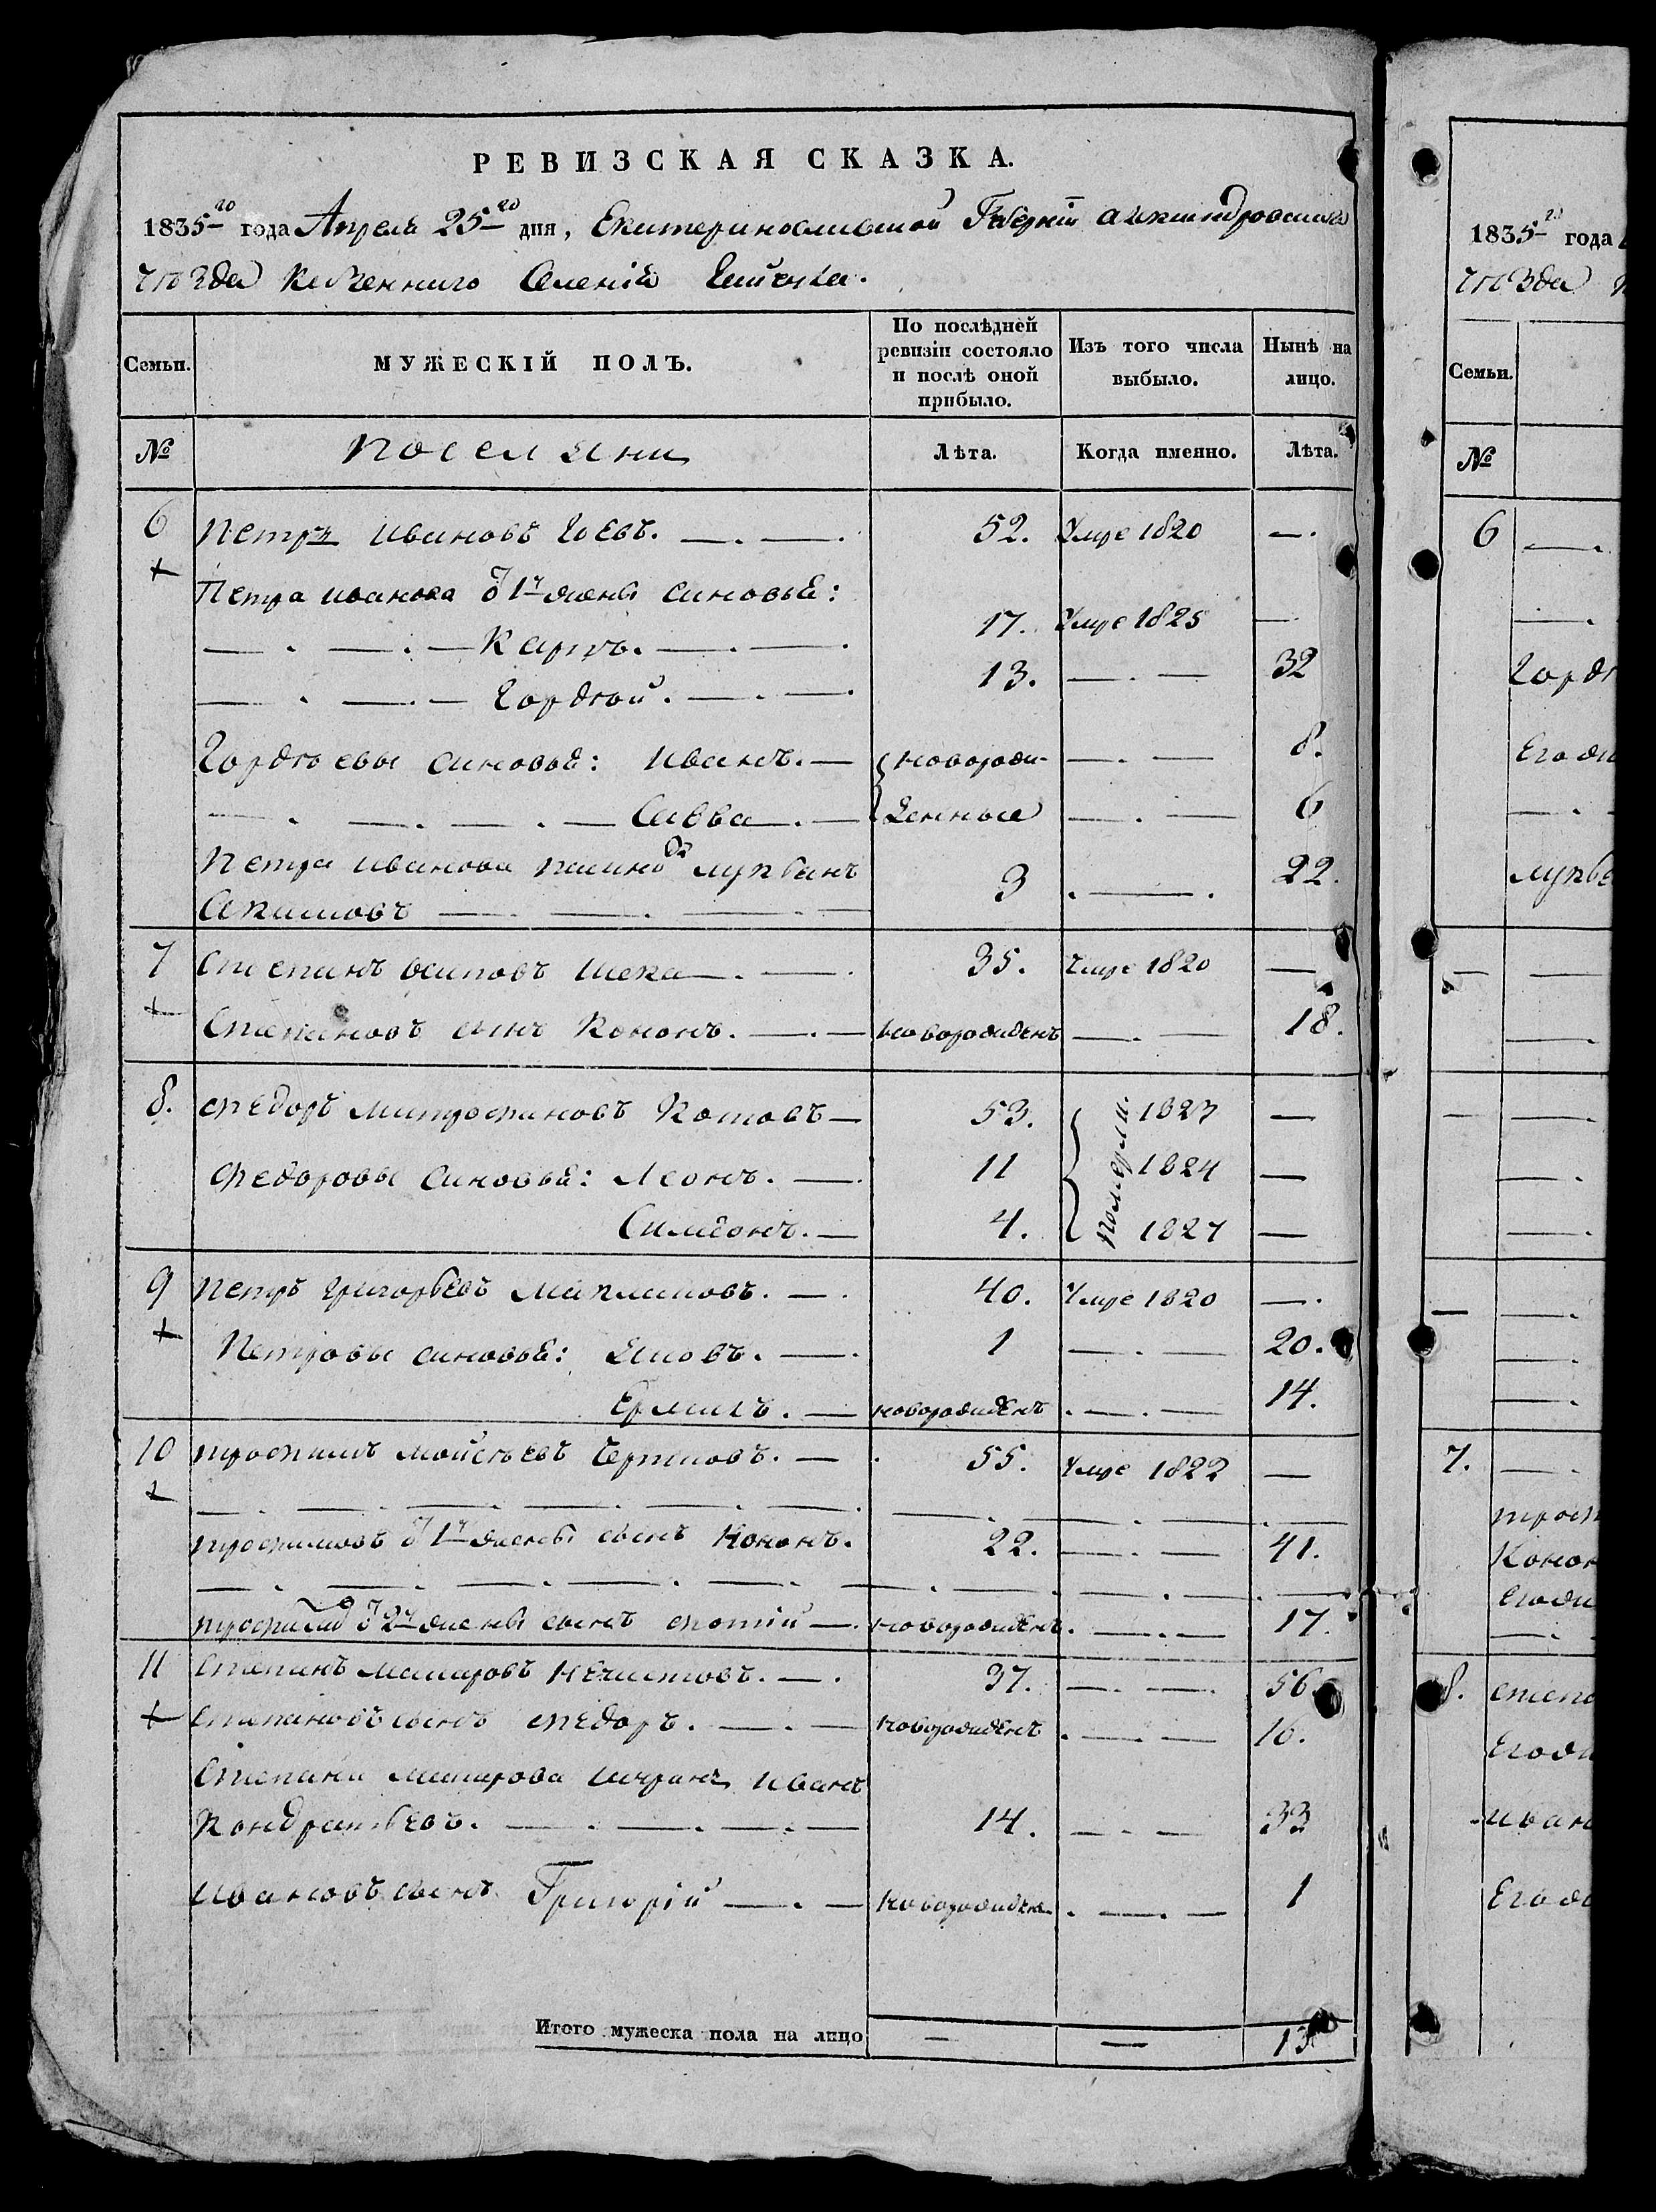 РЕВИЗСКАЯ СКАЗКА.
1835го года Апреля 25го дня, Екатеринославской Губерніи Александровскаго
уѣзда казеннаго Селенія
Семьи.
МУЖЕСКІЙ ПОЛЪ.
По послѣдней ревизіи состояло и послѣ оной прибыло.
Изъ того числа выбыло.
Нынѣ на лицо.
№
поселяни
Лѣта.
Когда именно.
Лѣта.
6 Петръ Ивановъ 52. Умре 1820 —.
Петра Иванова 1й жены синовья:
Карпъ. 17. Умре 1825 —
Гордѣй. 13. — . — 32
Гордѣевы синовья: Иванъ. — новорож- — . — 8.
Савва — денные — . — 6
Петра Иванова
Акимовъ 3 . — . 22.
7 Степанъ Осиповъ 35. Умре 1820 —
Степановъ сынъ Кононъ. — . — новорожденъ — . — 18.
8. Федоръ Митрофановъ Котовъ — 53. Померли. 1827 —
Федоровы синовья: Леонъ. — 11 1824 —
Симеонъ. — 4. 1827 —
9 Петръ Григорьевъ — . 40. Умре 1820 — .
Петровы синовья: Яковъ. — . 1 — . — 20.
Ермилъ. — новорожденъ . — . — 14.
10 Трофимъ Мойсѣевъ — . 55. Умре 1822 —
Трофимовъ 1й жены сынъ Кононъ. 22. — . — 41.
2й жены сынъ Фотій — . новорожденъ . — . — 17.
11 Степанъ Макаровъ — . 37. — . — . 56
Степановъ сынъ Федоръ. — . — новорожденъ . — . — 16.
Степана Макарова Иванъ
Кондратьевъ. 14. — . — 33
Ивановъ сынъ Григорій — . — новорожден . — . — 1
Итого мужеска пола на лицо — —
1835го года
уѣзда
Семьи.
№
6
7.
8.